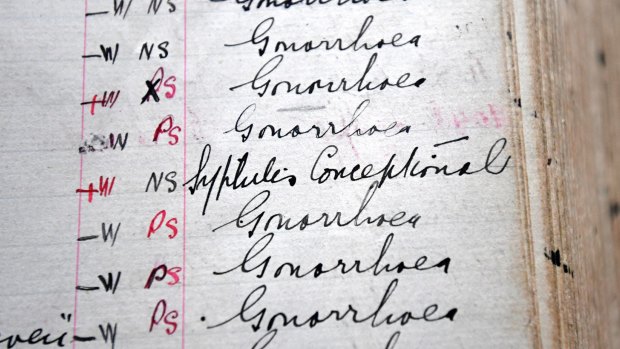 –W NS Gonorrhoea
–W NS Gonorrhoea
+W PS Gonorrhoea
W PS Gonorrhoea
+W NS Syphilis Conceptional
–W PS Gonorrhoea
–W PS Gonorrhoea
–W PS Gonorrhoea